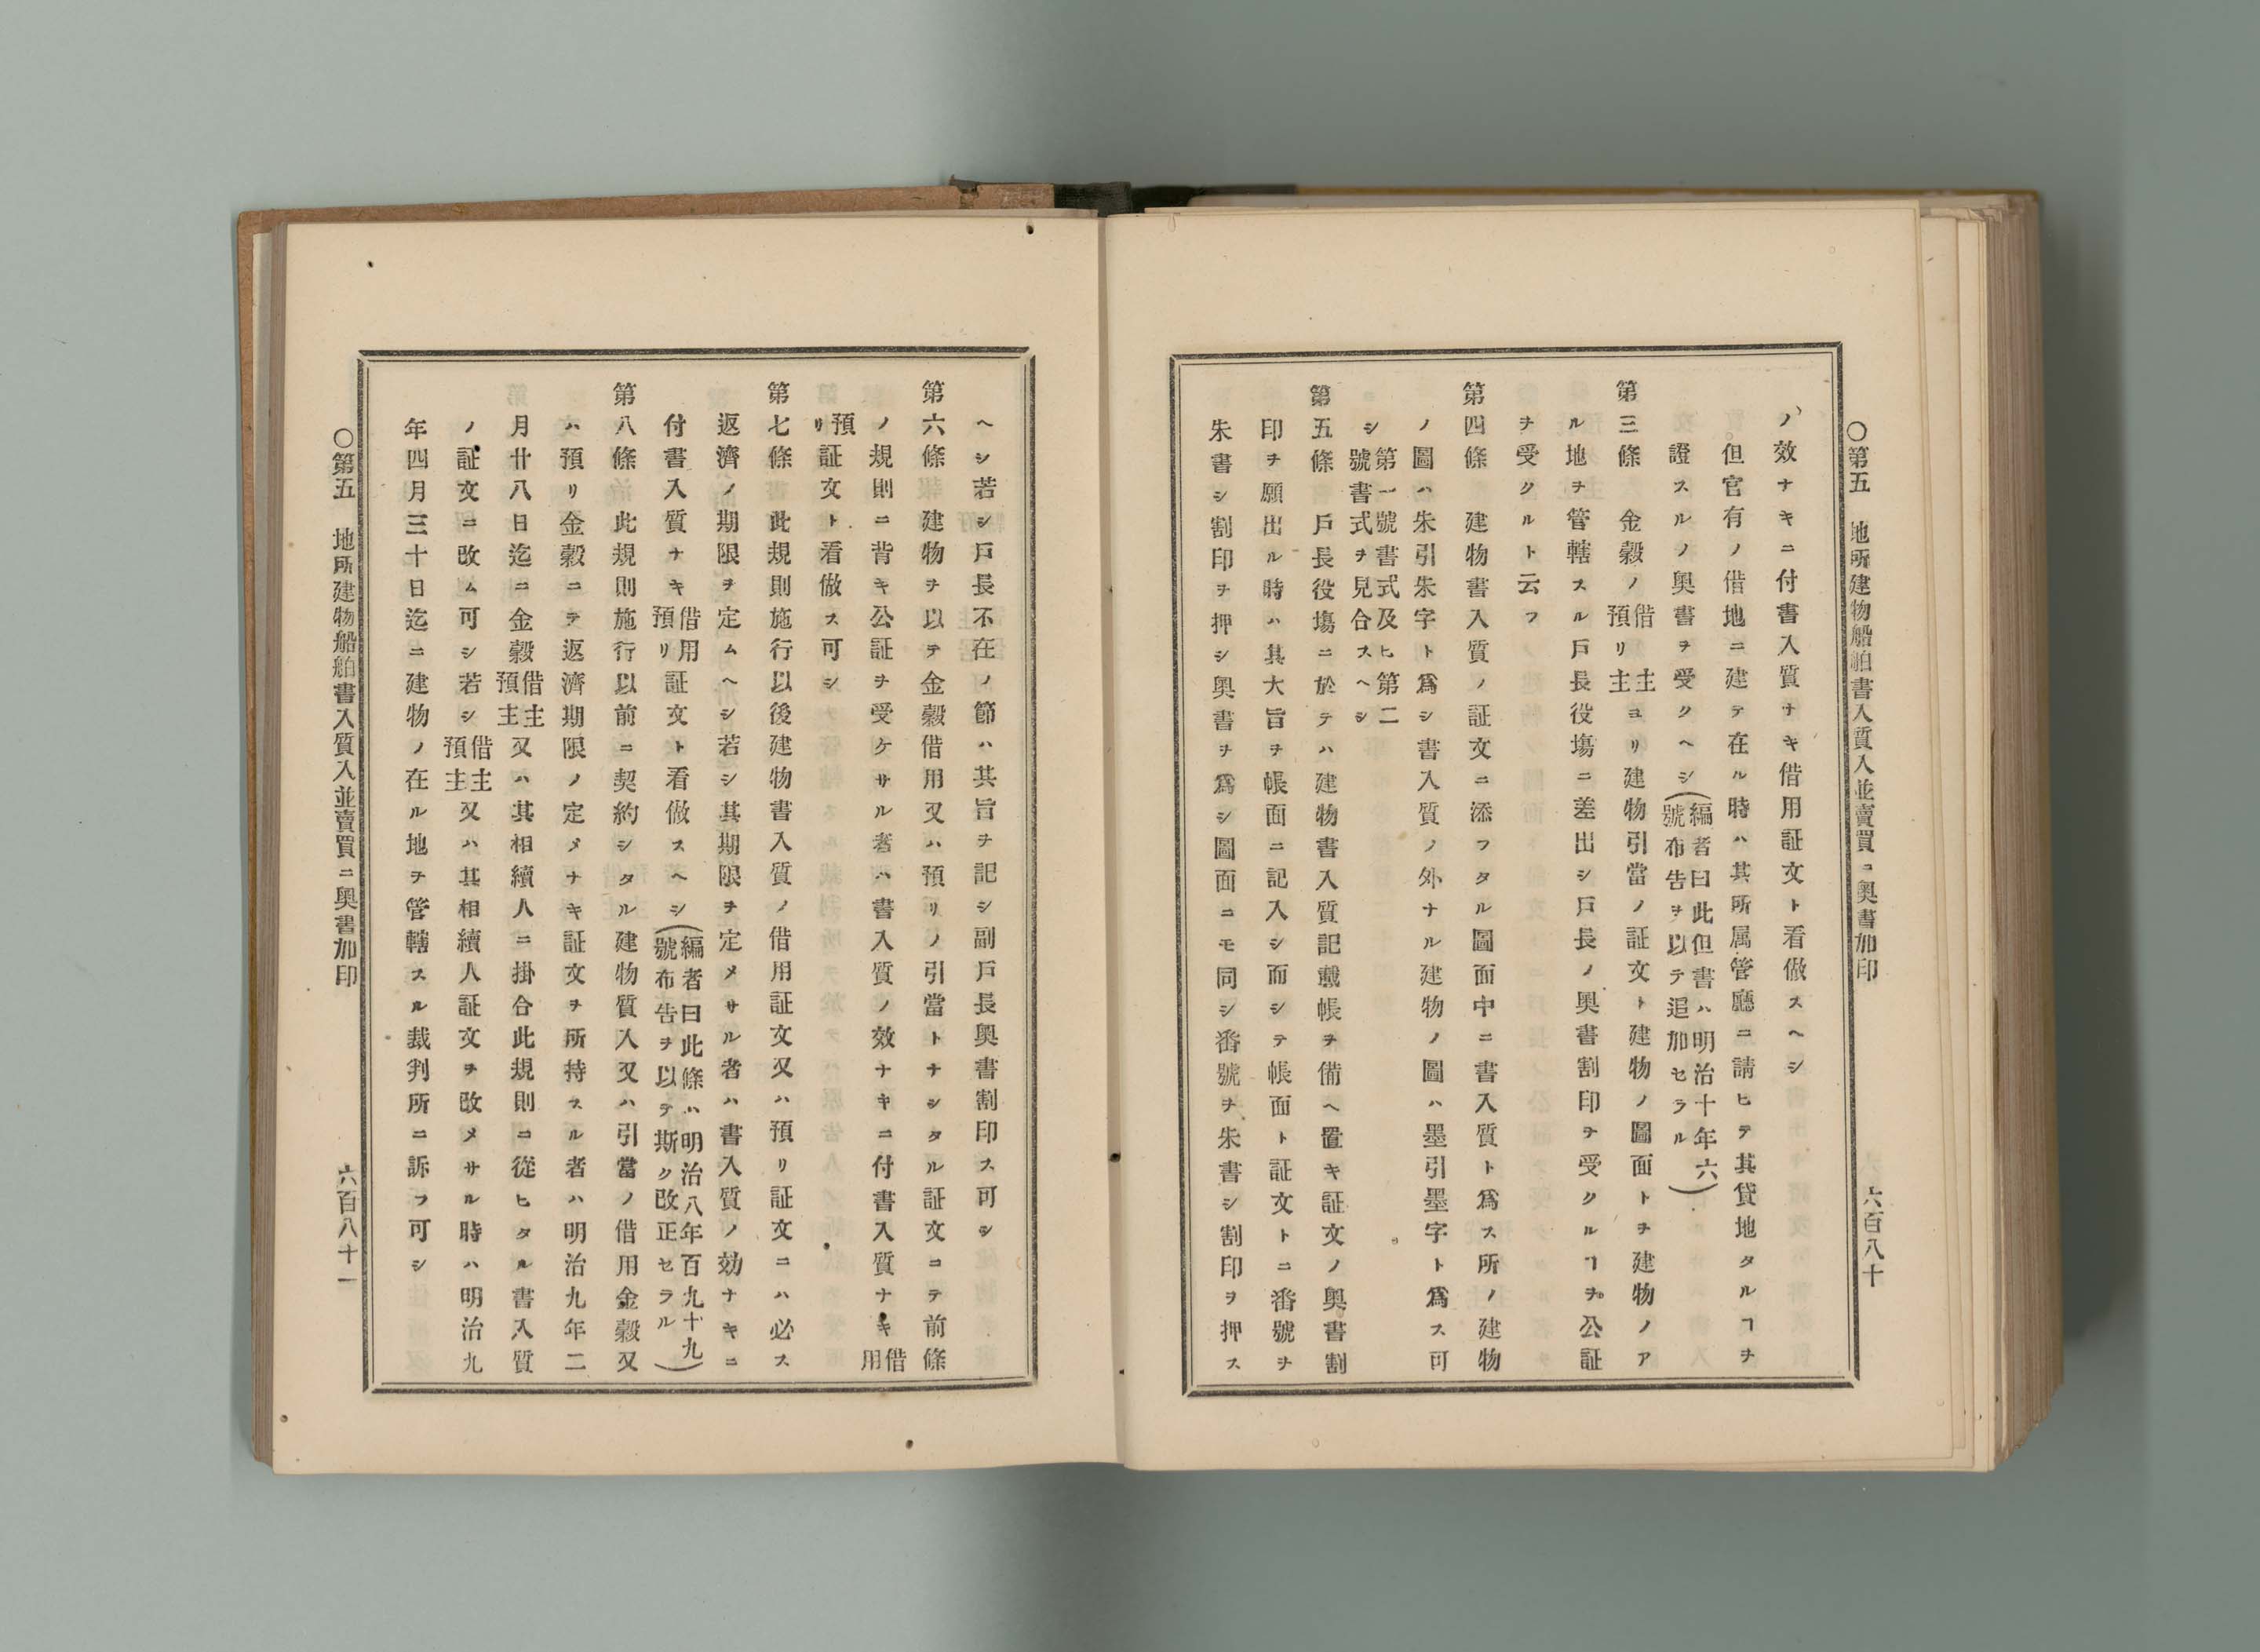 ○第五　地所建物船舶書入質入並賣買ニ奧書加印　六百八十
ノ效ナキニ付書入質ナキ借用証文ト看做スヘシ
但官有ノ借地ニ建テ在ル時ハ其所属管廳ニ請ヒテ其貸地タルヿヲ
證スルノ奧書ヲ受クヘシ(編者曰此但書ハ明治十年六號布告ヲ以テ追加セラル)
第三條　金穀ノ借リ主預リ主ヨリ建物引當ノ証文ト建物ノ圖面トヲ建物ノア
ル地ヲ管轄スル戸長役塲ニ差出シ戸長ノ奧書割印ヲ受クルヿヲ公証
ヲ受クルト云フ
第四條　建物書入質ノ証文ニ添フタル圖面中ニ書入質ト爲ス所ノ建物
ノ圖ハ朱引朱字ト爲シ書入質ノ外ナル建物ノ圖ハ墨引墨字ト爲ス可
シ第一號書式及ヒ第二號書式ヲ見合スヘシ
第五條　戸長役塲ニ於テハ建物書入質記載帳ヲ備ヘ置キ証文ノ奧書割
印ヲ願出ル時ハ其大旨ヲ帳面ニ記入シ而シテ帳面ト証文トニ番號ヲ
朱書シ割印ヲ押シ奧書ヲ爲シ圖面ニモ同シ番號ヲ朱書シ割印ヲ押ス
ヘシ若シ戸長不在ノ節ハ其旨ヲ記シ副戸長奧書割印ス可シ
第六條　建物ヲ以テ金穀借用又ハ預リノ引當トナシタル証文ニテ前條
ノ規則ニ背キ公証ヲ受ケサル者ハ書入質ノ效ナキニ付書入質ナキ借用
預リ証文ト看做ス可シ
第七條　此規則施行以後建物書入質ノ借用証文又ハ預リ証文ニハ必ス
返濟ノ期限ヲ定ムヘシ若シ其期限ヲ定メサル者ハ書入質ノ効ナキニ
付書入質ナキ借用預リ証文ト看做スヘシ(編者曰此條ハ明治八年百九十九號布告ヲ以テ斯ク改正セラル)
第八條　此規則施行以前ニ契約シタル建物質入又ハ引當ノ借用金穀又
ハ預リ金穀ニテ返濟期限ノ定メナキ証文ヲ所持スル者ハ明治九年二
月廿八日迄ニ金穀借主預主又ハ其相續人ニ掛合此規則ニ從ヒタル書入質
ノ証文ニ改ム可シ若シ借主預主又ハ其相續人証文ヲ改メサル時ハ明治九
年四月三十日迄ニ建物ノ在ル地ヲ管轄スル裁判所ニ訴フ可シ
○第五　地所建物船舶書入質入並賣買ニ奧書加印　六百八十一